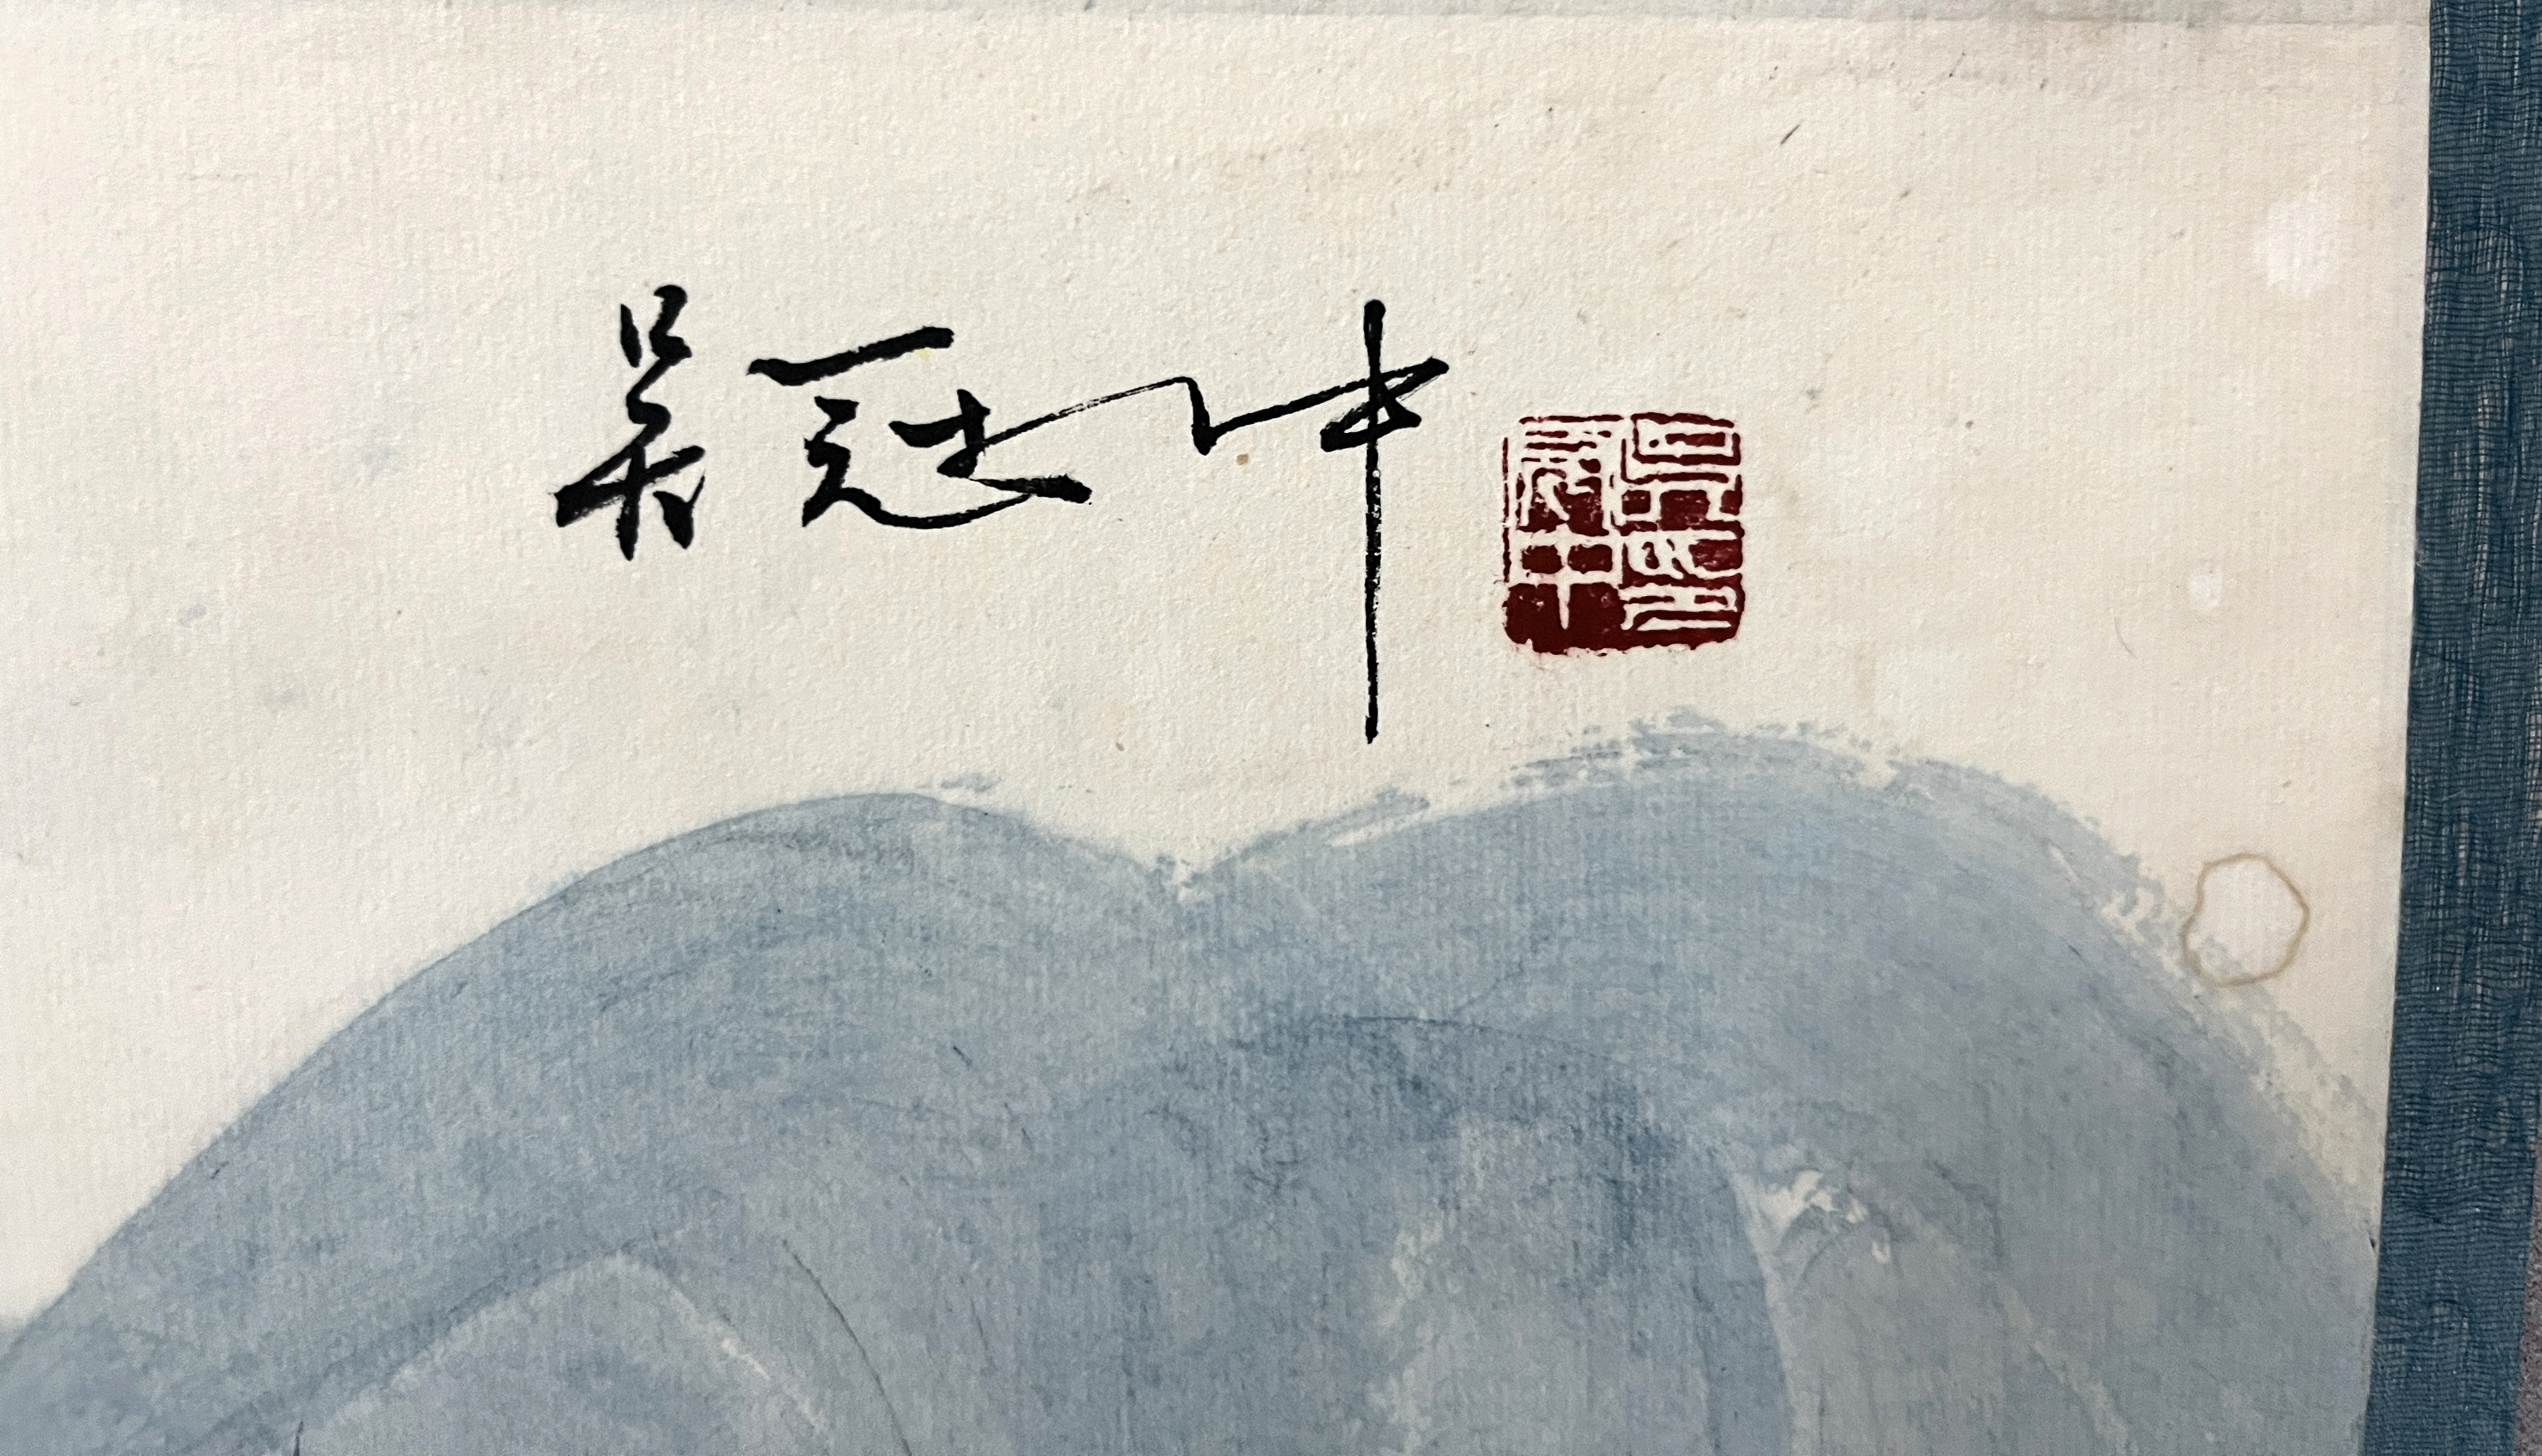 吴冠中
吴印冠中